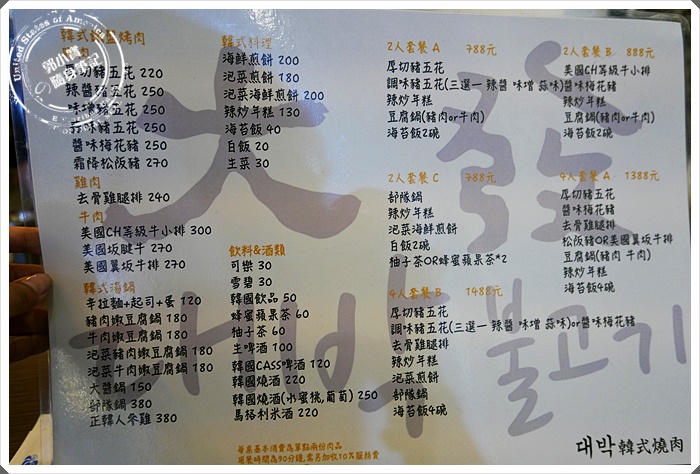 韓式銅盤烤肉
豬肉
厚切豬五花 220
辣醬豬五花 250
味增豬五花 250
蒜味豬五花 250
醬味梅花豬 250
霜降松阪豬 270
雞肉
去骨雞腿排 240
牛肉
美國CH等級牛小排 300
美國板腱牛 270
美國翼板牛排 270
韓式湯鍋
辛拉麵+起司+蛋 120
豬肉嫩豆腐鍋 180
牛肉嫩豆腐鍋 180
泡菜豬肉嫩豆腐鍋 180
泡菜牛肉嫩豆腐鍋 180
大醬鍋 150
部隊鍋 380
正韓人參雞 380
韓式料理
海鮮煎餅 200
泡菜煎餅 180
泡菜海鮮煎餅 200
辣炒年糕 130
海苔飯 40
白飯 20
生菜 30
飲料&酒類
可樂 30
雪碧 30
韓國飲品 50
蜂蜜蘋果茶 60
柚子茶 60
生啤酒 100
韓國CASS啤酒 120
韓國燒酒 220
韓國燒酒(水蜜桃,葡萄) 250
馬格利米酒 220
每桌基本消費為單點兩份肉品
用餐時間為90分鐘,需另加收10%服務費
2人套餐 A 788元
厚切豬五花
調味豬五花(三選一 辣醬 味增 蒜味)
辣炒年糕
豆腐鍋(豬肉or牛肉)
海苔飯2碗
2人套餐 B 888元
美國CH等級牛小排
醬味梅花豬
辣炒年糕
豆腐鍋(豬肉or牛肉)
海苔飯2碗
2人套餐 C 788元
部隊鍋
辣炒年糕
泡菜海鮮煎餅
白飯2碗
柚子茶OR蜂蜜蘋果茶*2
4人套餐 A 1388元
厚切豬五花
醬味梅花豬
去骨雞腿排
松阪豬OR美國翼板牛排
豆腐鍋(豬肉 牛肉)
辣炒年糕
海苔飯4碗
4人套餐 B 1488元
厚切豬五花
調味豬五花(三選一 辣醬 味增 蒜味)or醬味梅花豬
去骨雞腿排
辣炒年糕
泡菜煎餅
部隊鍋
海苔飯4碗
大發
대박 불고기
대박 韓式燒肉